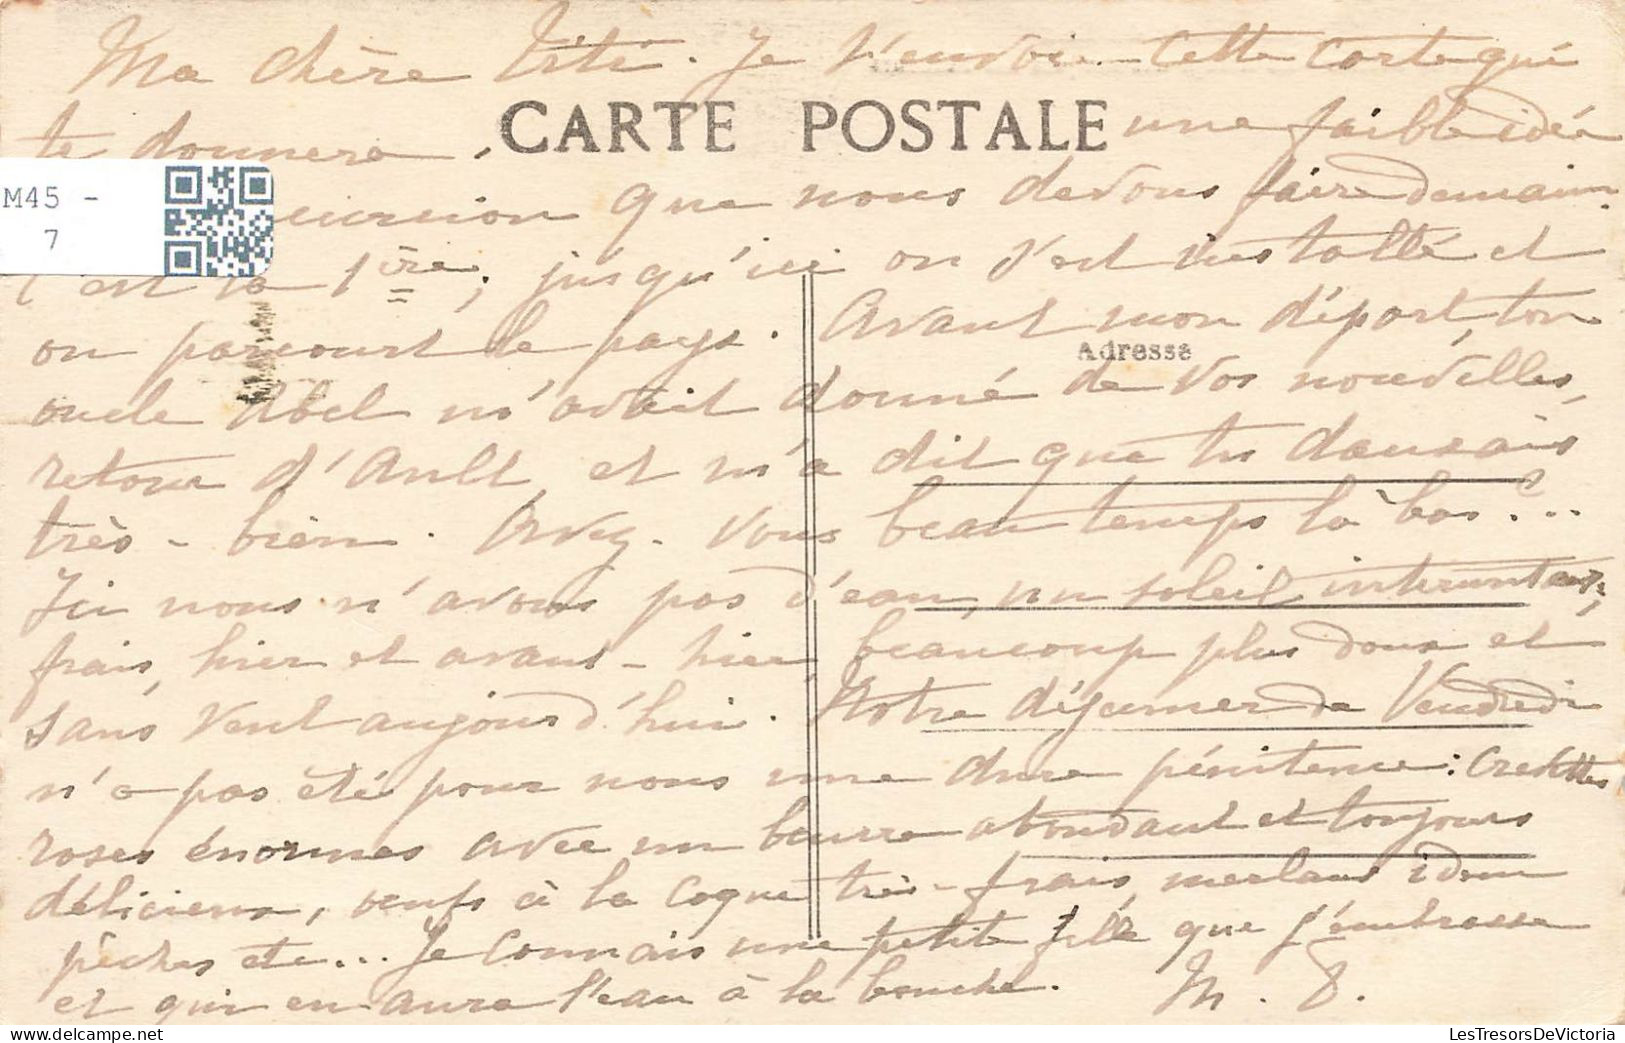 Ma chère Titi. Je t'envoie cette carte qui
CARTE POSTALE
te donnera une faible idée
M45 -
7
que nous devons faire demain.
c'est la 1ère; jusqu'ici on s'est installé et
on parcourt le pays. Avant mon départ, ton
Adresse
oncle Abel m'avait donné de vos nouvelles,
retour d'Ault et m'a dit que tu dansais
très-bien. Avez-vous beau temps là bas?..
Ici nous n'avons pas d'eau, un soleil
frais, hier et avant-hier, beaucoup plus doux et
sans vent aujourd'hui. Notre déjeuner de Vendredi
n'a pas été pour nous une dure pénitence: Crevettes
roses énormes avec un beurre abondant et toujours
délicieux, oeufs à la coque très-frais, merlans idem
pêches etc... Je connais une petite fille que j'embrasse
et qui en aura l'eau à la bouche. M. T.
LesTresorsDeVictoria